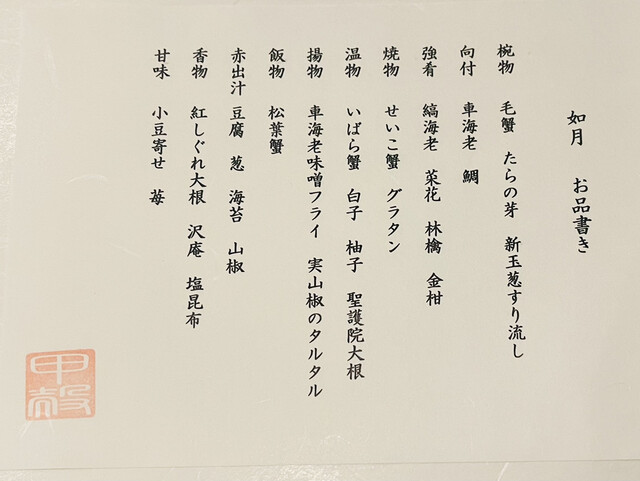 如月 お品書き
椀物 毛蟹 たらの芽 新玉葱すり流し
向付 車海老 鯛
強肴 縞海老 菜花 林檎 金柑
焼物 せいこ蟹 グラタン
温物 いばら蟹 白子 柚子 聖護院大根
揚物 車海老味噌フライ 実山椒のタルタル
飯物 松葉蟹
赤出汁 豆腐 葱 海苔 山椒
香物 紅しぐれ大根 沢庵 塩昆布
甘味 小豆寄せ 苺
甲殻